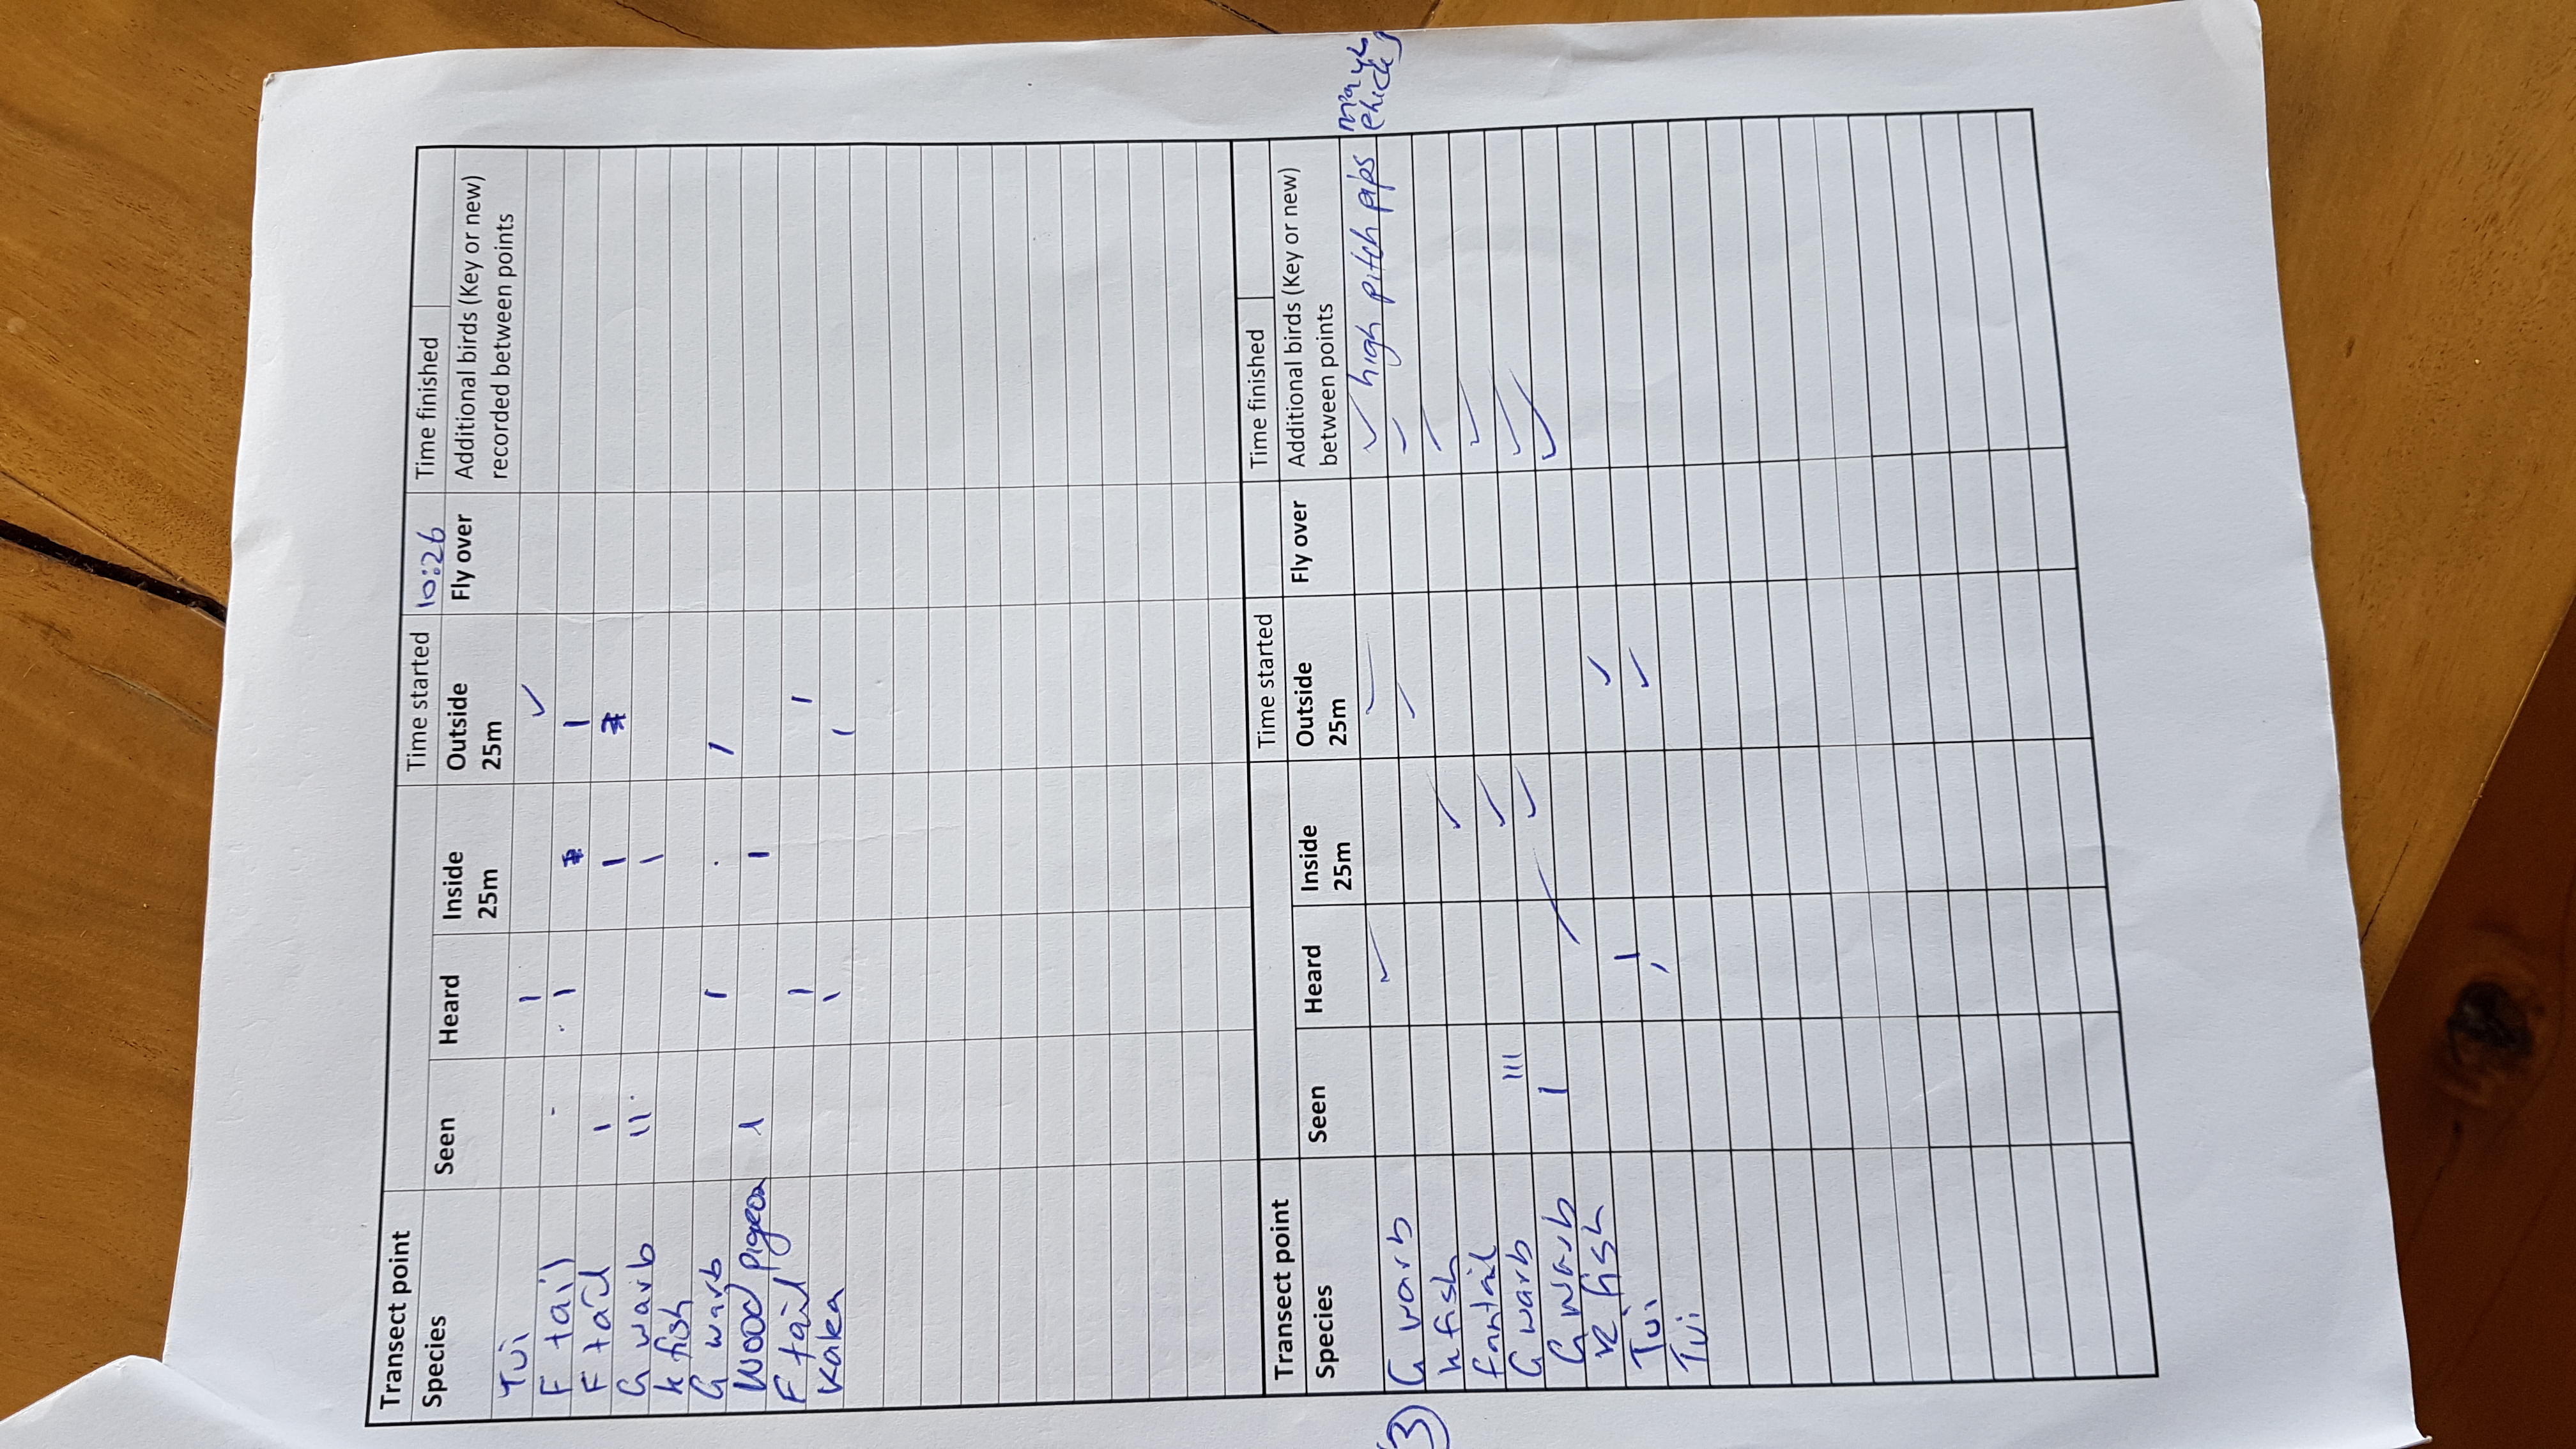 Transect point Time started 10:26 Time finished
Species Seen Heard Inside 25m Outside 25m Fly over Additional birds (Key or new) recorded between points
Tui I ✓
F tail I I
F tail I I
G warb II I
K fish
G warb I I
Wood pigeon I I
F tail I I
Kaka I I
3
Transect point Time started Time finished
Species Seen Heard Inside 25m Outside 25m Fly over Additional birds (Key or new) between points
G warb ✓ ✓ ✓ high pitch pips maybe chicks
K fish ✓ ✓ ✓
fantail ✓ ✓
G warb III ✓ ✓
G warb I ✓ ✓
K fish ✓
Tui I ✓
Tui I